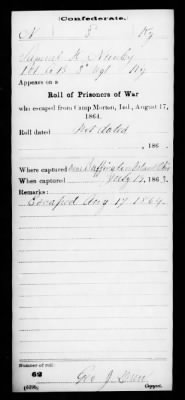 (Confederate.)
N 3 Ky
Samuel H Newby
Appears on a
Roll of Prisoners of War
who escaped from Camp Morton, Ind., August 17,
1864.
Roll dated Not dated
, 186 .
Where captured near Buffington Island Ohio
When captured July 19, 186
Remarks:
Escaped Aug 17 1864.
Number of roll
62
Geo J
Copyist.